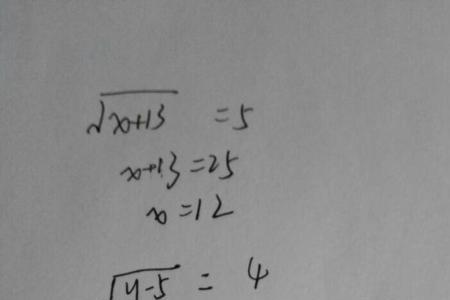 √x+13 = 5
x+13 = 25
x = 12
√y-5 = 4